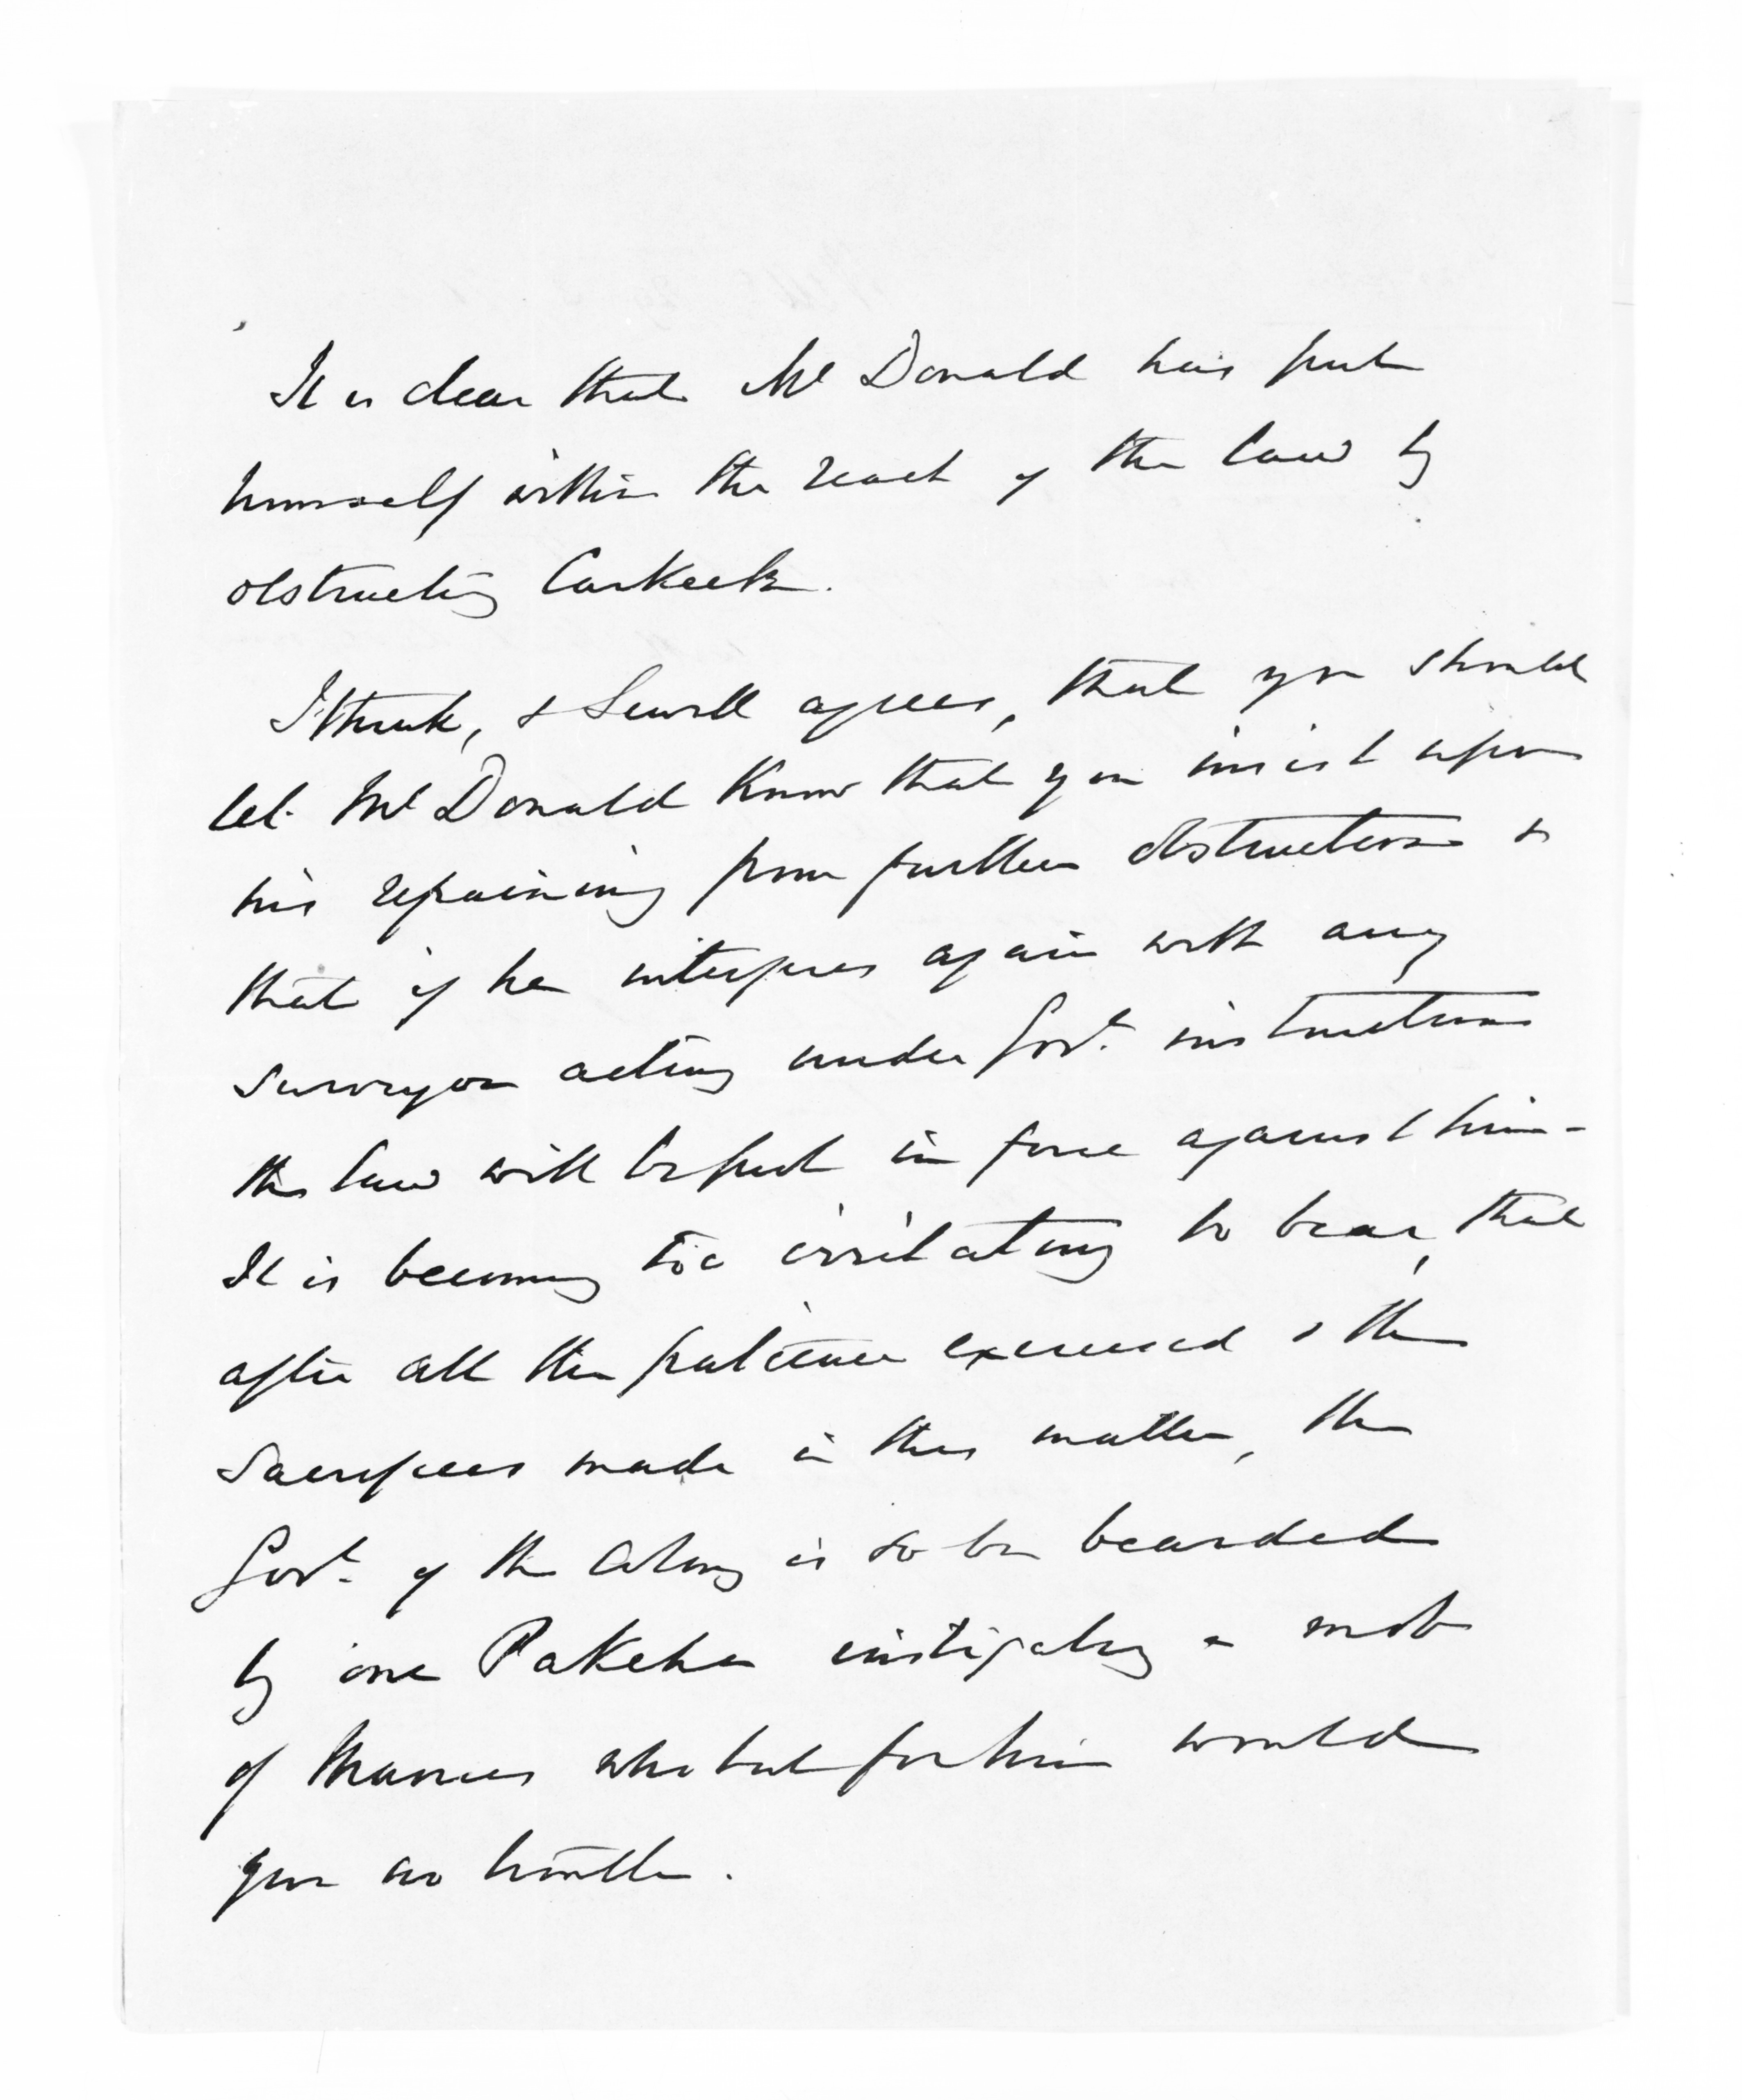 It is clear that McDonald has put
himself within the reach of the law by
obstructing Carkeek.
I think, & Sewell agrees, that you should
let McDonald know that you insist upon
his refraining from further obstruction &
that if he interferes again with any
surveyor acting under Govt. instructions
the law will be put in force against him -
It is becoming too irritating to bear, that
after all the patience exercised & the
sacrifices made in this matter, the
Govt. of the Colony is to be bearded
by one Pakeha instigating a mob
of Maories who but for him would
give no trouble.